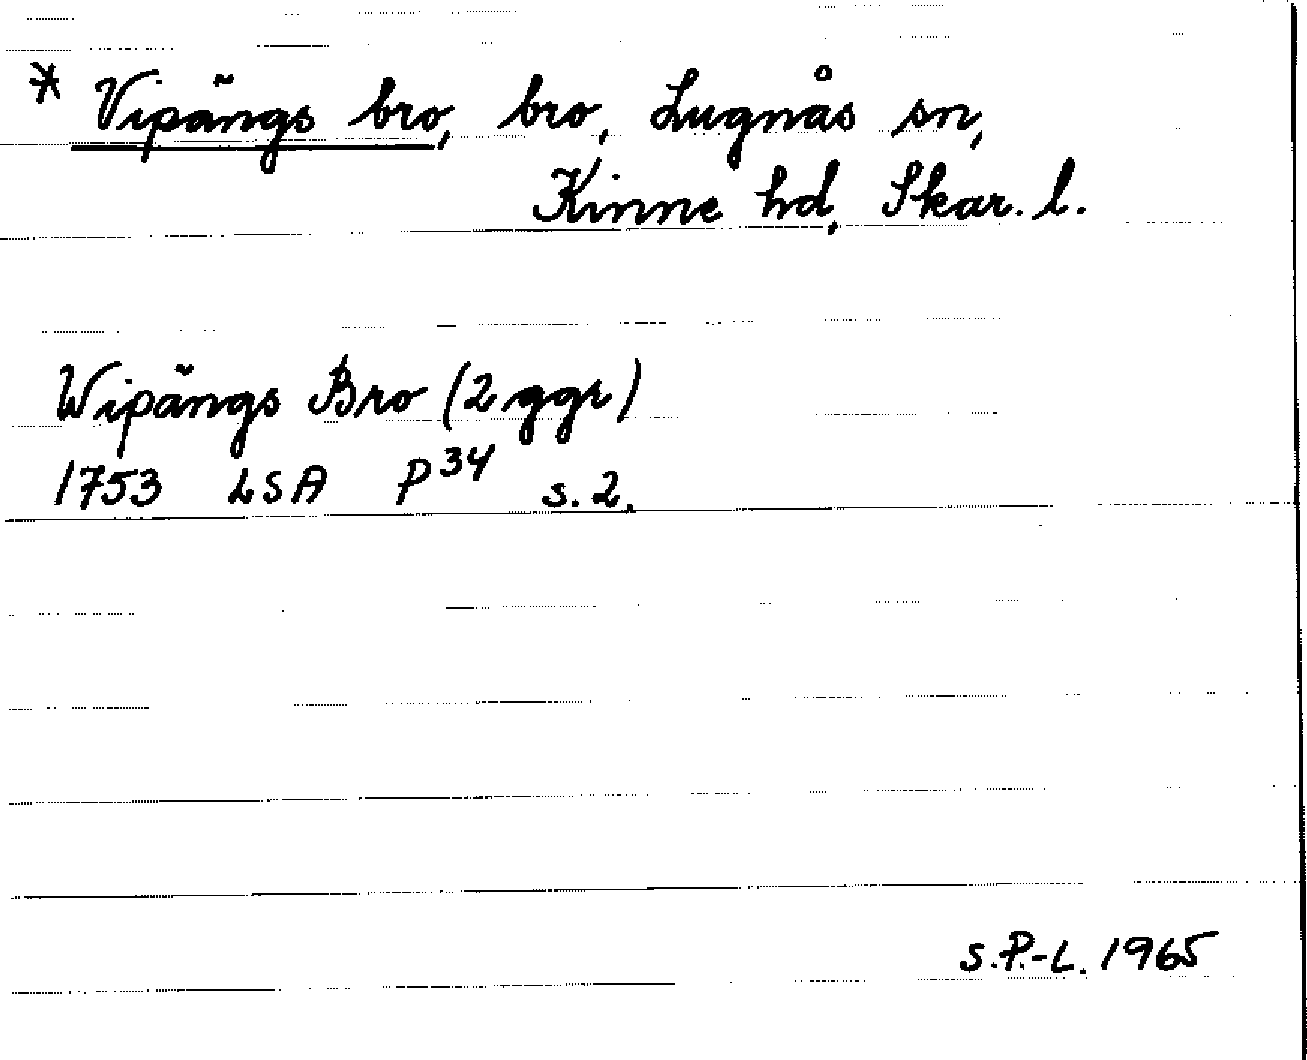 * Vipängs bro, bro, Lugnås sn,
Kinne hd, Skar. l.
Wipängs Bro (2 ggr)
1753 LSA P³⁴ s. 2.
S.P.-L. 1965